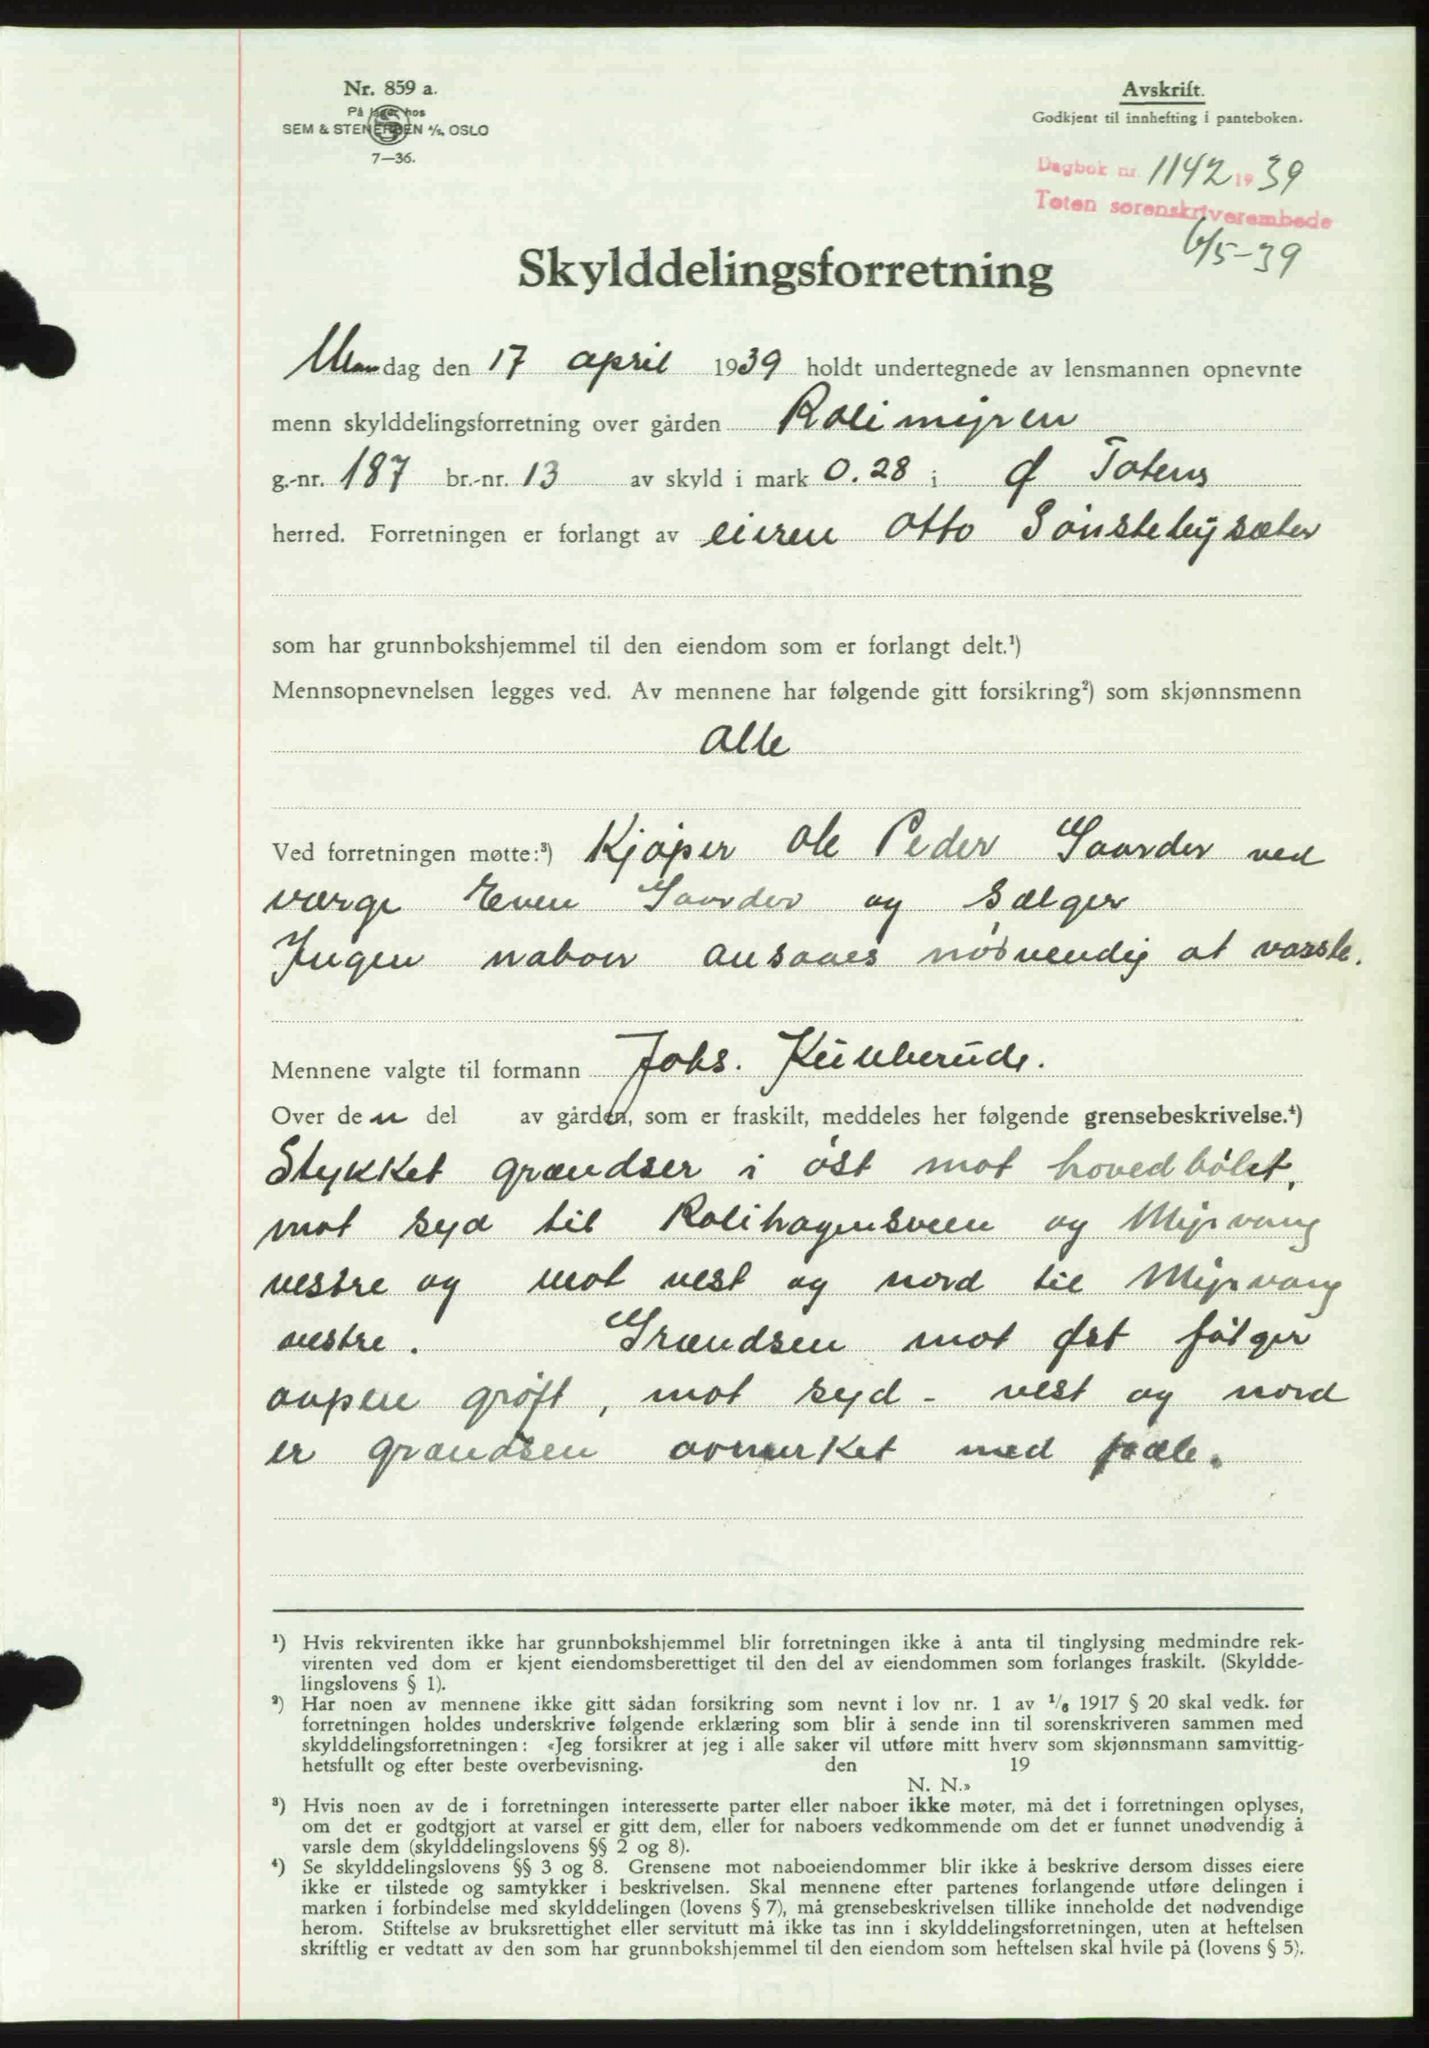 Nr. 859 a.
På lager hos
SEM & STENERSEN A/S, OSLO
7—36.
Avskrift.
Godkjent til innhefting i panteboken.
Dagbok nr. 1142 19 39
Toten sorenskriverembede
6/5-39
Skylddelingsforretning
Mandag den 17 april 1939 holdt undertegnede av lensmannen opnevnte
menn skylddelingsforretning over gården Rolimyren
g.-nr. 187 br.-nr. 13 av skyld i mark 0.28 i Ø Totens
herred. Forretningen er forlangt av eieren Otto Sönstebysæter
som har grunnbokshjemmel til den eiendom som er forlangt delt.¹)
Mennsopnevnelsen legges ved. Av mennene har følgende gitt forsikring²) som skjønnsmenn
alle
Ved forretningen møtte:³) Kjøper Ole Peder Gaarder ved
værge Even Gaarder og Sælger
Ingen naboer ansaaes nödvendig at varsle.
Mennene valgte til formann Johs. Kullerude.
Over den del av gården, som er fraskilt, meddeles her følgende grensebeskrivelse.⁴)
Stykket grændser i öst mot hovedbölet,
mot syd til Rolihagensveen og Myrvang
vestre og mot vest og nord til Myrvang
vestre. Grændsen mot Øst fölger
aapen gröft, mot syd - vest og nord
er grændsen avmerket med pæle.
¹) Hvis rekvirenten ikke har grunnbokshjemmel blir forretningen ikke å anta til tinglysing medmindre rek-
virenten ved dom er kjent eiendomsberettiget til den del av eiendommen som forlanges fraskilt. (Skyldde-
lingslovens § 1).
²) Har noen av mennene ikke gitt sådan forsikring som nevnt i lov nr. 1 av 1/6 1917 § 20 skal vedk. før
forretningen holdes underskrive følgende erklæring som blir å sende inn til sorenskriveren sammen med
skylddelingsforretningen: «Jeg forsikrer at jeg i alle saker vil utføre mitt hverv som skjønnsmann samvittig-
hetsfullt og efter beste overbevisning. den 19
N. N.»
³) Hvis noen av de i forretningen interesserte parter eller naboer ikke møter, må det i forretningen oplyses,
om det er godtgjort at varsel er gitt dem, eller for naboers vedkommende om det er funnet unødvendig å
varsle dem (skylddelingslovens §§ 2 og 8).
⁴) Se skylddelingslovens §§ 3 og 8. Grensene mot naboeiendommer blir ikke å beskrive dersom disses eiere
ikke er tilstede og samtykker i beskrivelsen. Skal mennene efter partenes forlangende utføre delingen i
marken i forbindelse med skylddelingen (lovens § 7), må grensebeskrivelsen tillike inneholde det nødvendige
herom. Stiftelse av bruksrettighet eller servitutt må ikke tas inn i skylddelingsforretningen, uten at heftelsen
skriftlig er vedtatt av den som har grunnbokshjemmel til den eiendom som heftelsen skal hvile på (lovens § 5).